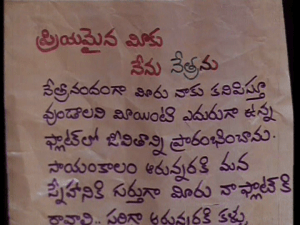 ప్రియమైన మీకు
నేను నేత్రను
నేత్రానందంగా మీరు నాకు కనిపిస్తూ
వుండాలని మీయింటి ఎదురుగా ఉన్న
ఫ్లాట్‌లో జీవితాన్ని ప్రారంభించాను.
సాయంకాలం ఆరున్నరకి మన
స్నేహానికి గుర్తుగా మీరు నా ఫ్లాట్ కి
రావాలి.. సరిగా ఆరున్నరకి కళ్ళు